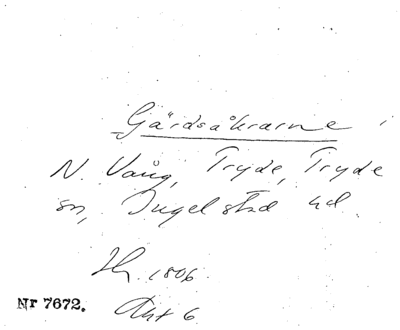 Gärdsåkrarne i
N. Vång, Tryde, Tryde
sn, Ingelstad hd.
Hy. 1806
Akt 6
Nr 7672.